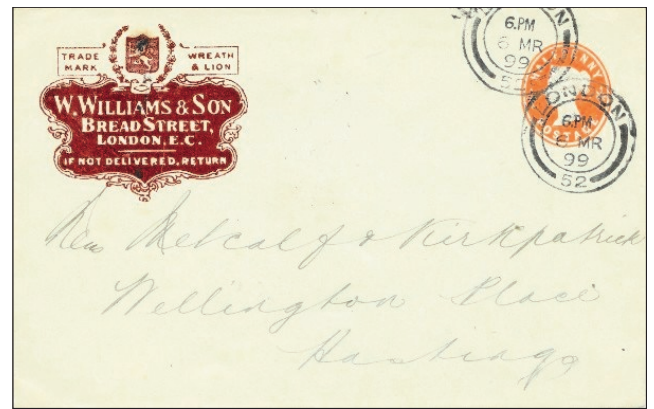 TRADE MARK
WREATH & LION
W. WILLIAMS & SON
BREAD STREET,
LONDON, E.C.
IF NOT DELIVERED, RETURN
LONDON
6.PM
6 MR
99
52
HALFPENNY
POSTAGE
LONDON
6.PM
6 MR
99
52
Metcalf & Kirkpatrick
Wellington Place
Hastings